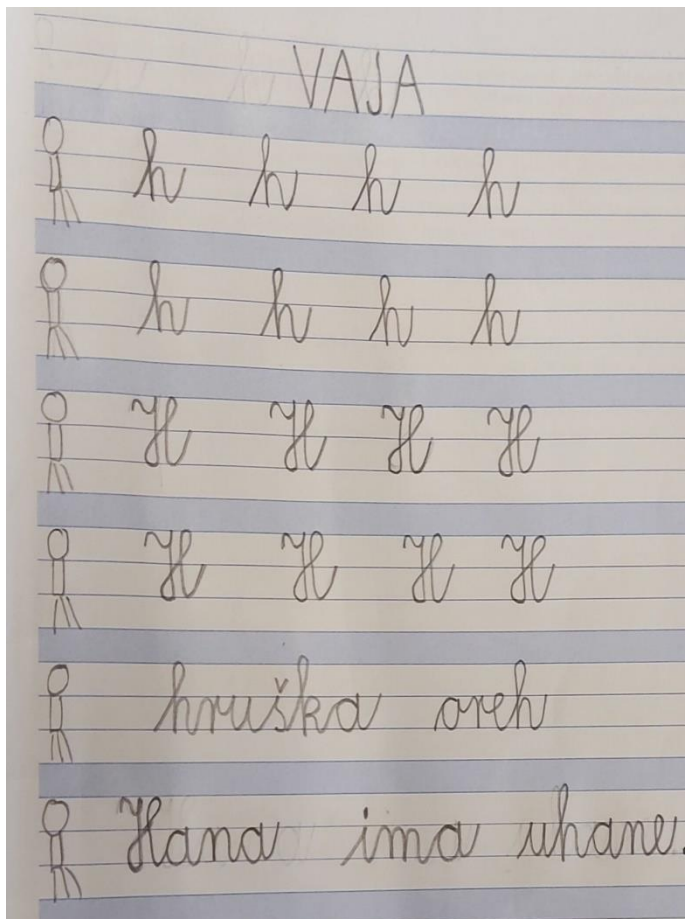 VAJA
h h h h
h h h h
H H H H
H H H H
hruška oreh
Hana ima uhane.